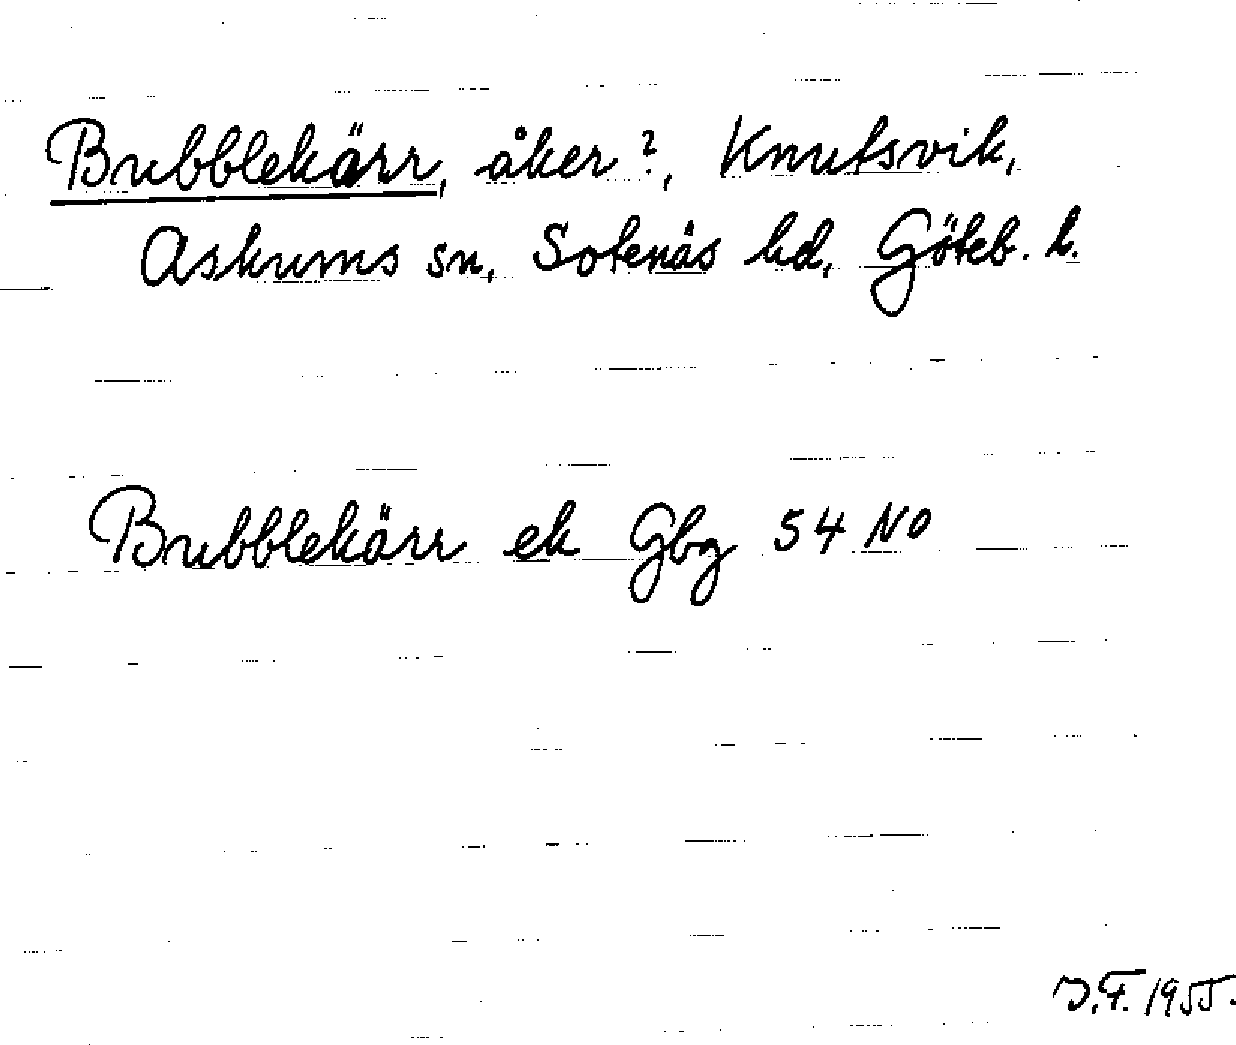 Bubblekärr, åker?, Knutsvik,
Askums sn, Sotenäs hd, Göteb. l.
Bubblekärr ek Gbg 54 NO
J.F. 1955.